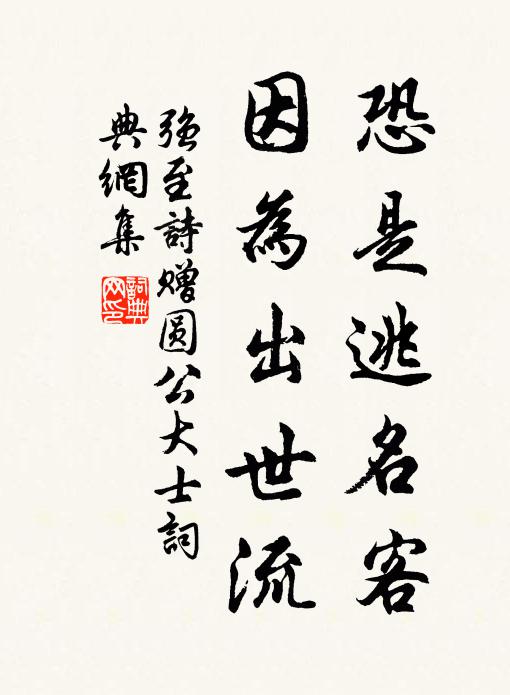 恐是逃名客
因為出世流
強至詩贈圓公大士詞
典網集
詞典网印